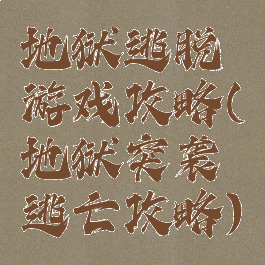 地狱逃脱
游戏攻略(
地狱突袭
逃亡攻略)